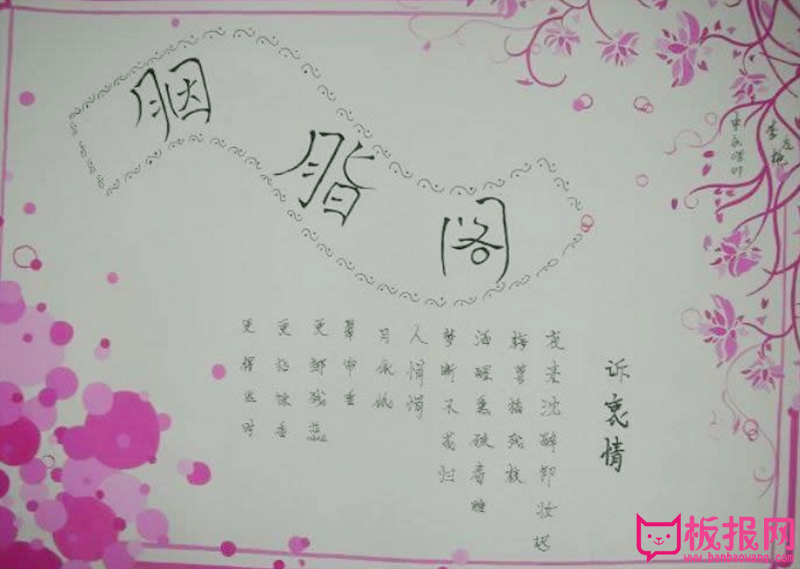 胭脂阁
诉衷情
夜来沈醉卸妆迟
梅萼插残枝
酒醒熏破春睡
梦断不成归
人悄悄
月依依
翠帘垂
更残蕊
更捻馀香
更得些时
板报网
www.banbaowang.com